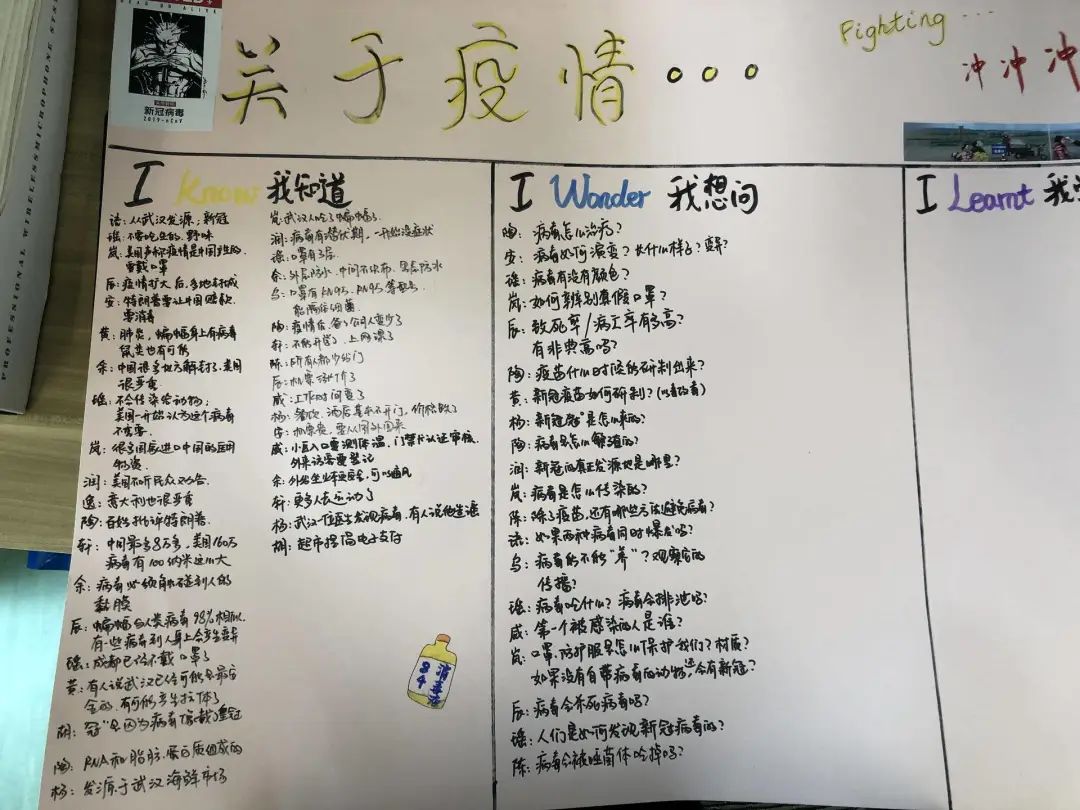 DEAD OR ALIVE
新冠病毒
2019-nCoV
PROFESSIONAL WIRELESS MICROPHONE
关于疫情...
Fighting...
冲冲冲
I Know 我知道
语：从武汉发源；新冠
瑶：不要吃生的、野味
岚：美国声称疫情是中国产生的.
要戴口罩
辰：疫情扩大后，各地封城
安：特朗普要让中国赔款.
要消毒
黄：肺炎，蝙蝠身上有病毒
鼠类也有可能
余：中国很多地方解封了，美国
很严重
瑶：不会传染给动物；
美国一开始认为这个病毒
不重要
岚：很多国家进口中国的医用
物资.
润：美国不听民众劝告.
逸：意大利也很严重
陶：百姓批评特朗普.
轩：中国最多8万多，美国160万
病毒有100纳米这么大
余：病毒必须触碰到人的
黏膜
辰：蝙蝠与人类病毒98%相似.
有一些病毒到人身上会产生变异
瑶：成都已经不戴口罩了
黄：有人说武汉已经可能是最安
全的，有可能产生抗体了
胡：“冠”是因为病毒像戴了皇冠
陶：RNA和脂肪、蛋白质组成的
杨：发源于武汉海鲜市场
岚：武汉人吃了蝙蝠了.
润：病毒有潜伏期，一开始没症状
瑶：口罩有3层.
余：外层防水，中间不织布，里层防水
乌：口罩有KN95、RN95等型号，
能隔住细菌.
陶：疫情后，备了的人变少了
轩：不能开学了，上网课了
陈：所有人都少出门
辰：机票涨价了
威：工作时间变了
杨：餐饮、酒店基本不开门，价格跌了
安：机票贵，要从国外回来
威：小区入口要测体温，门禁认证审核.
外来访客要登记
余：外出坐公车更安全，可以通风
轩：更多人去运动了
杨：武汉一位医生发现病毒，有人说他造谣
胡：超市提倡电子支付
84消毒液
I Wonder 我想问
陶：病毒怎么治疗？
安：病毒如何演变？长什么样子？变异？
瑶：病毒有没有颜色？
岚：如何辨别真假口罩？
辰：致死率/病亡率有多高？
有非典高吗？
陶：疫苗什么时候能研制出来？
黄：新冠疫苗如何研制？（以毒攻毒）
杨：新冠“冠”是怎么来的？
陶：病毒是怎么繁殖的？
润：新冠的真正发源地是哪里？
岚：病毒是怎么传染的？
陈：除了疫苗，还有哪些方法避免病毒？
语：如果两种病毒同时爆发呢？
乌：病毒能不能“养”？观察它的
传播？
瑶：病毒吃什么？病毒会排泄吗？
威：第一个被感染的人是谁？
岚：口罩、防护服是怎么保护我们？材质？
如果没有自带病毒的动物，还会有新冠？
辰：病毒会杀死病毒吗？
瑶：人们是如何发现新冠病毒的？
陈：病毒会被噬菌体吃掉吗？
I Learnt 我